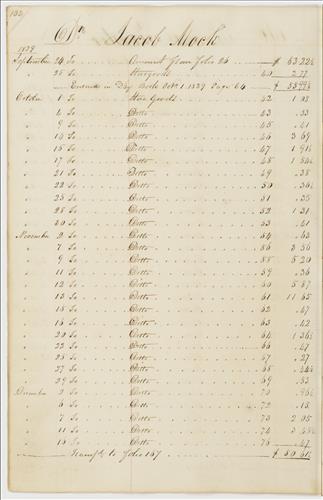 Dr. Jacob Mock
1829
September 24 To Amount from folio 26 $ 53.22½
" 25 To Stor goods 40 .77
" Entered in Day Book Octr. 1. 1829 Page 64 $ 53.99½
October 1 To Stor Goods 42
" 4 To Ditto 43 .53
" 9 To Ditto 45 .41
" 14 To Ditto 46 3 69
" 15 To Ditto 47
" 17 To Ditto 48
" 21 To Ditto 49 .38
" 22 To Ditto 50
" 25 To Ditto 51 .35
" 28 To Ditto 52 1 31
" 30 To Ditto 53 .41
November 2 To Ditto 54
" 7 To Ditto 56 3 56
" 9 To Ditto 58 5 20
" 11 To Ditto 59 .36
" 12 To Ditto 60 .87
" 13 To Ditto 61 11 65
" 15 To Ditto 62 .67
" 16 To Ditto 63 .42
" 20 To Ditto 64
" 22 To Ditto 66 .47
" 25 To Ditto 67 .27
" 27 To Ditto 68
" 29 To Ditto 69 .53
December 2 To Ditto 70
" 6 To Ditto 72 .15
" 7 To Ditto 73 2 05
" 11 To Ditto 74
" 13 To Ditto 76 .47
Transfd. to Folio 157